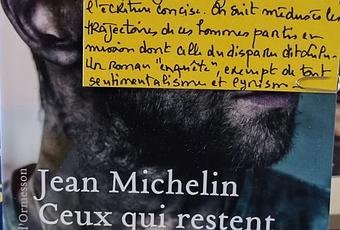 l'écriture concise. On suit médusés les
trajectoires de ces hommes partis en
mission dont celle du disparu
Un roman "enquête", exempt de tout
sentimentalisme et lyrisme
d'Ormesson
Jean Michelin
Ceux qui restent